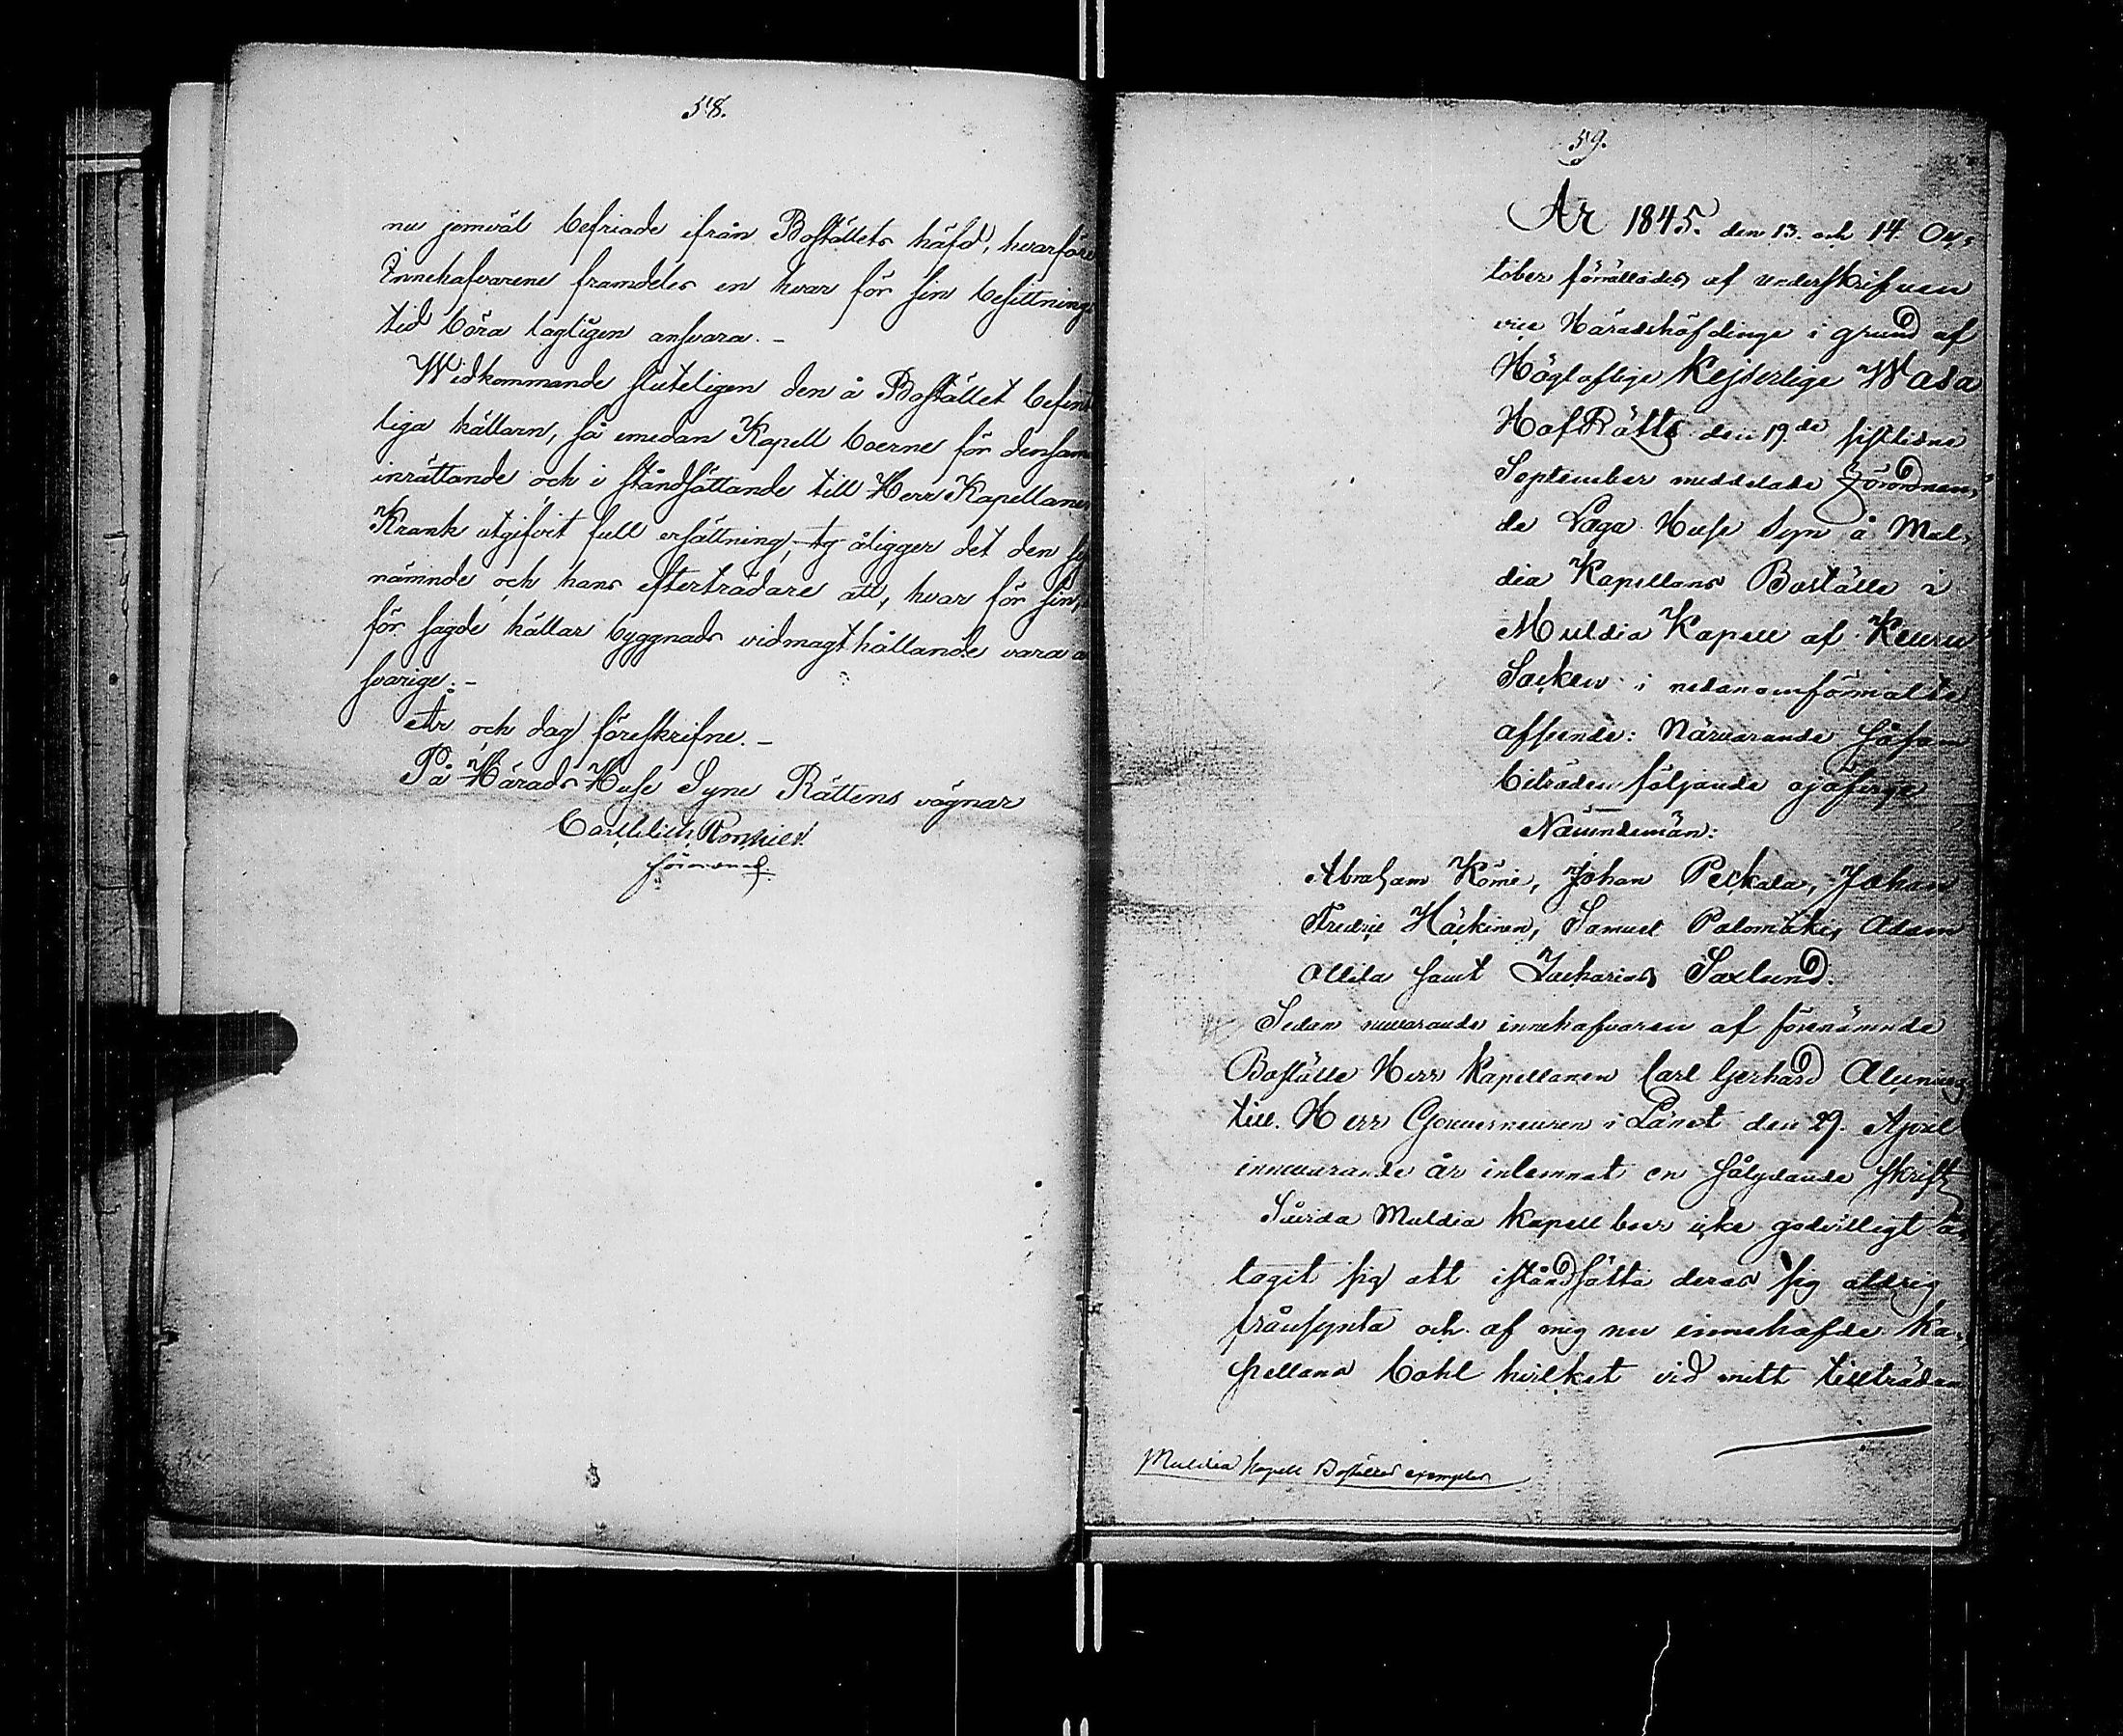 58.
nu jemväl befriade ifrån Boställets häfd, hvarföre
Innehafvarene framdeles en hvar för sin besittnings
tid böra lagligen ansvara. -
Widkommande sluteligen den å Bostället befint
liga källarn, så emedan Kapell boerne för densam
inrättande och i ståndsättande till Herr Kapellanen
Krank utgifvit full ersättning, åligger det den
nämnde och hans efterträdare att, hvar för sin,
för sagde källar byggnads vidmagthållande vara
svarige. -
År och dag föreskrifne. -
På Härads Huse Syne Rättens vägnar
59.
År 1845. den 13. och 14. Oc-
tober förrättades af underskrifven
vice Häradshöfdinge i grund af
Högloflige Kejserlige Wasa
HofRätts den 19de sistlidne
September meddelade Förordnan-
de Laga Huse Syn å Mul-
dia Kapellans Boställe i
Muldia Kapell af Keuru
Socken i nedanomförmälte
afseende: Närvarande såsom
biträden följande ojäfvige
Nämndemän:
Abraham Kömi, Johan Peckala, Johan
Fredric Häckinen, Samuel Palomäki, Adam
Ollila samt Zacharias Saxlund.
Sedan nuvarande innehafvaren af förenämnde
Boställe Herr Kapellanen Carl Gerhard
till Herr Gouverneuren i Länet den 29. April
innevarande år inlemnat en sålydande skrift
Såvida Muldia Kapell boer icke godvilligt å-
tagit sig att iståndsätta deras sig aldrig
fränsynta och af mig nu innehafde Ka-
pellans bohl hvilket vid mitt tillträdan
Muldia Kapell Boställes exemplar